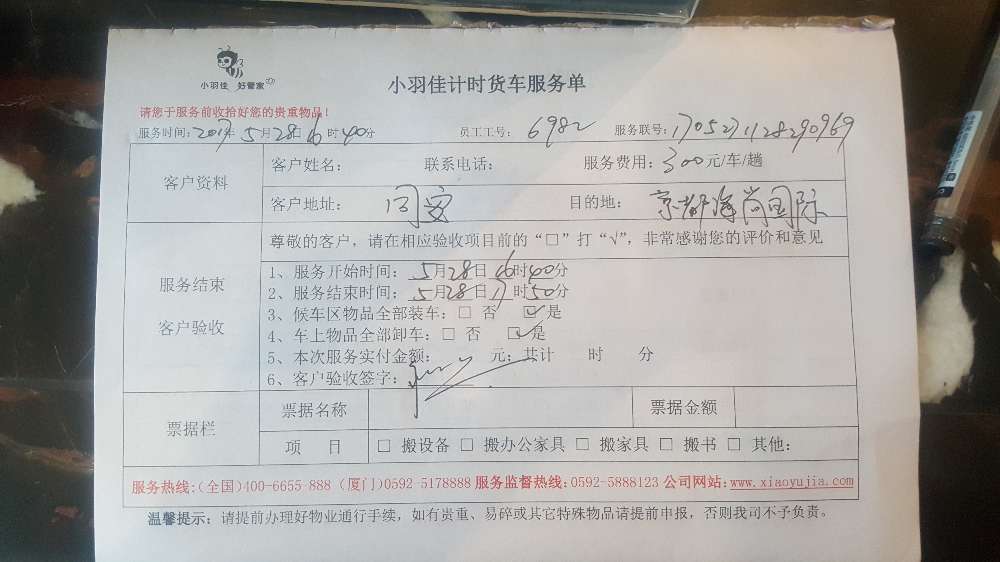 小羽佳 好管家
小羽佳计时货车服务单
请您于服务前收拾好您的贵重物品！
服务时间：2017年5月28日16时40分 员工工号：6982 服务联号：1705271128290969
客户资料
客户姓名： 联系电话： 服务费用：300元/车/趟
客户地址：同安 目的地：京都海尚国际
服务结束
客户验收
尊敬的客户，请在相应验收项目前的“□”打“√”，非常感谢您的评价和意见
1、服务开始时间：5月28日16时40分
2、服务结束时间：5月28日17时50分
3、候车区物品全部装车：□ 否 ☑是
4、车上物品全部卸车：□ 否 ☑是
5、本次服务实付金额： 元；共计 时 分
6、客户验收签字：
票据栏
票据名称 票据金额
项 目 □ 搬设备 □ 搬办公家具 □ 搬家具 □ 搬书 □ 其他：
服务热线:(全国)400-6655-888 (厦门)0592-5178888 服务监督热线:0592-5888123 公司网站:www.xiaoyujia.com
温馨提示：请提前办理好物业通行手续，如有贵重、易碎或其它特殊物品请提前申报，否则我司不予负责。